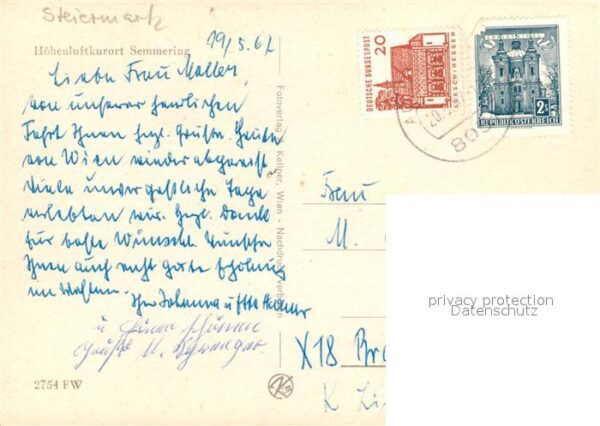 Steiermark
Höhenluftkurort Semmering
19/5.67
Liebe Frau Moller,
von unserer herrlichen
Fahrt Ihnen hrzl. Grüße. Heute
von Wien wieder abgereist
Viele unvergeßliche Tage
verlebten wir. Hrzl. Dank
für beste Wünsche. Wünsche
Ihnen auch recht gute Erholung
im
Ihre Johanna u.
u.
Grüße M.
2754 FW
Fotoverlag A. Kellner, Wien - Nachdruck verboten
20
DEUTSCHE BUNDESPOST
LORSCH/HESSEN
2S
REPUBLIK ÖSTERREICH
20.
80
Frau
M.
X18 Br
K Li
privacy protection
Datenschutz